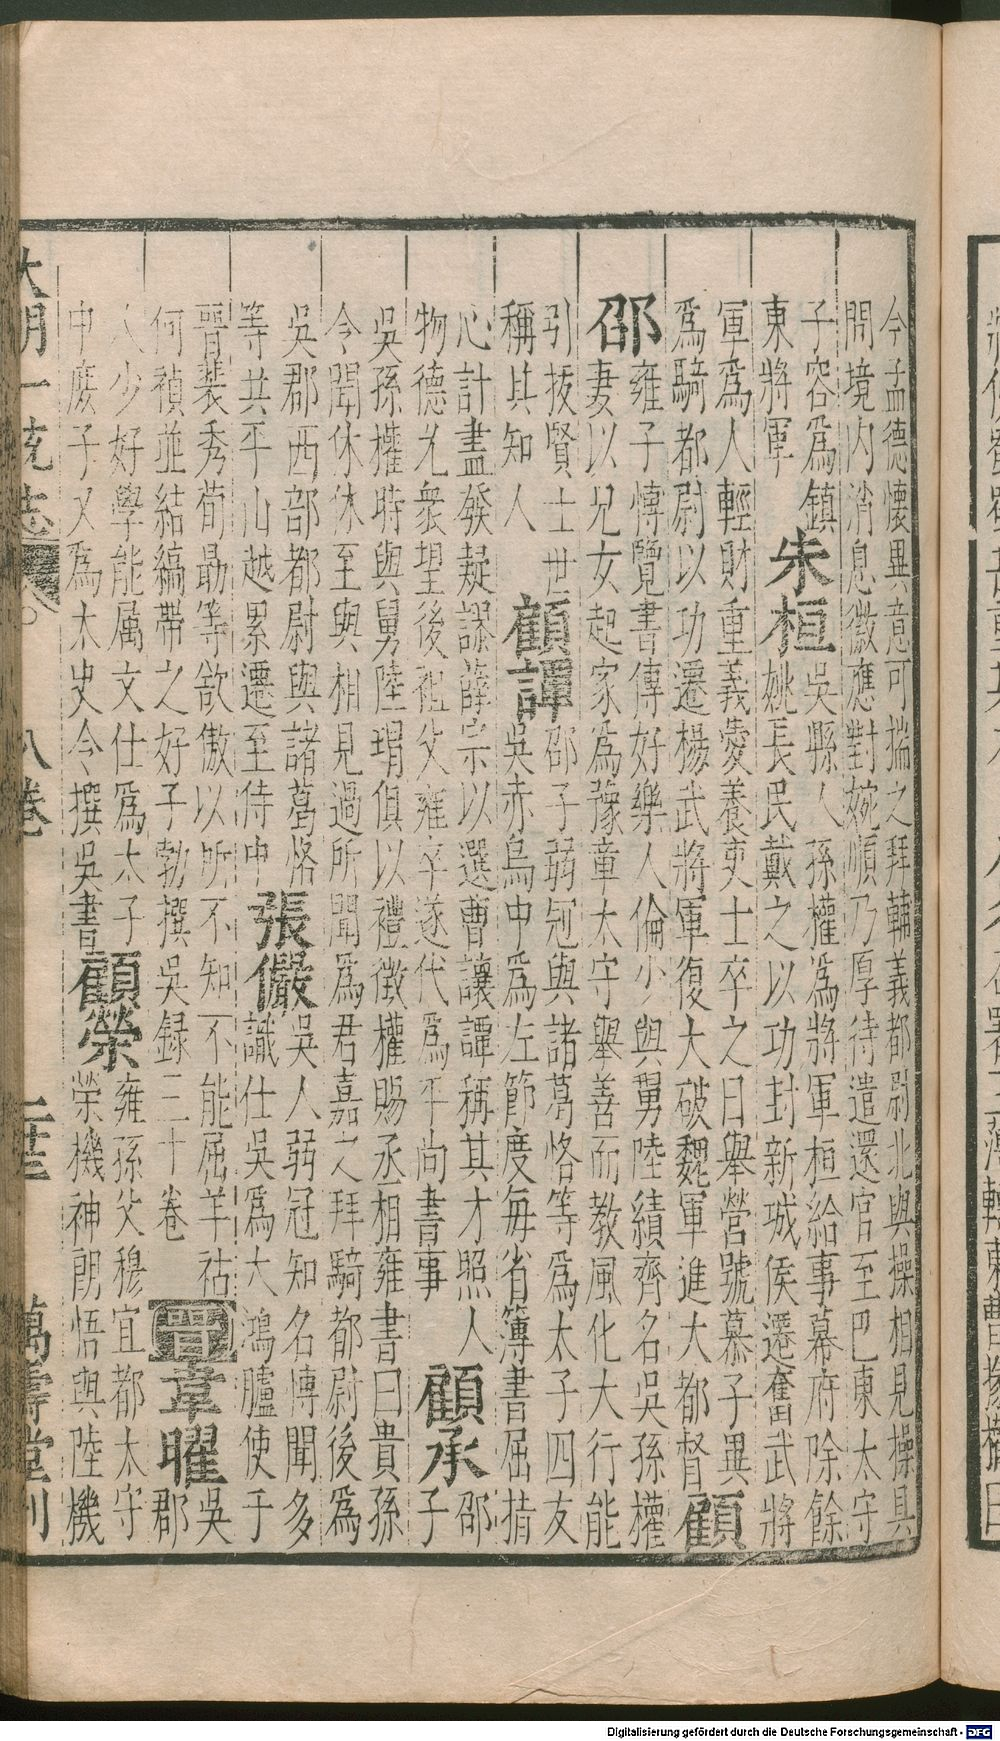 今孟德懷異意可揣之拜輔義都尉北與操相見操具
問境内消息徽應對婉順乃厚待遣還官至巴東太守
子容為鎮
東將軍
朱桓
吳縣人孫權為將軍桓給事幕府除餘
姚長民戴之以功封新城侯遷奮武將
軍為人輕財重義愛養吏士卒之日舉營號慕子異
為騎都尉以功遷楊武將軍復大破魏軍進大都督
顧
邵
雍子愽覽書傳好樂人倫少與舅陸績齊名吳孫權
妻以兄女起家為豫章太守舉善而教風化大行能
引拔賢士世
稱其知人
顧譚
邵子弱冠與諸葛恪等為太子四友
吳赤烏中為左節度每省簿書屈指
心計盡發疑謬薛宗以選曹讓譚稱其才照人
物德允衆望後祖父雍卒遂代為平尚書事
顧承
邵
子
吳孫權時與舅陸瑁俱以禮徵權賜丞相雍書曰貴孫
令聞休休至與相見過所聞為君嘉之拜騎都尉後為
吳郡西部都尉與諸葛恪
等共平山越累遷至侍中
張儼
吳人弱冠知名愽聞多
識仕吳為大鴻臚使于
晉裴秀荀勗等欲傲以所不知不能屈羊祜
何禎並結縞帶之好子勃撰吳録三十卷
晉
韋曜
吳
郡
人少好學能属文仕為太子
中庶子又為太史令撰吳書
顧榮
雍孫父穆宜都太守
榮機神朗悟與陸機
大明一統志
八卷
萬壽堂刊
Digitalisierung gefördert durch die Deutsche Forschungsgemeinschaft - DFG